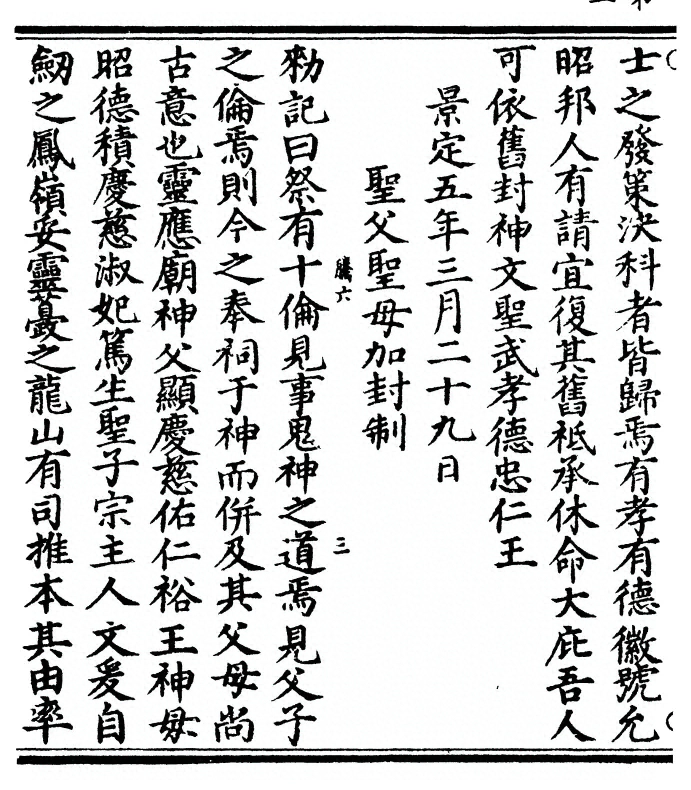 士之發策決科者皆歸焉有孝有德徽號允
昭邦人有請宜復其舊祗承休命大庇吾人
可依舊封神文聖武孝德忠仁王
景定五年三月二十九日
聖父聖母加封制
騰六
三
勑記曰祭有十倫見事鬼神之道焉見父子
之倫焉則今之奉祠于神而併及其父母尚
古意也靈應廟神父顯慶慈佑仁裕王神母
昭德積慶慈淑妃篤生聖子宗主人文爰自
劒之鳳嶺妥靈䕫之龍山有司推本其由率